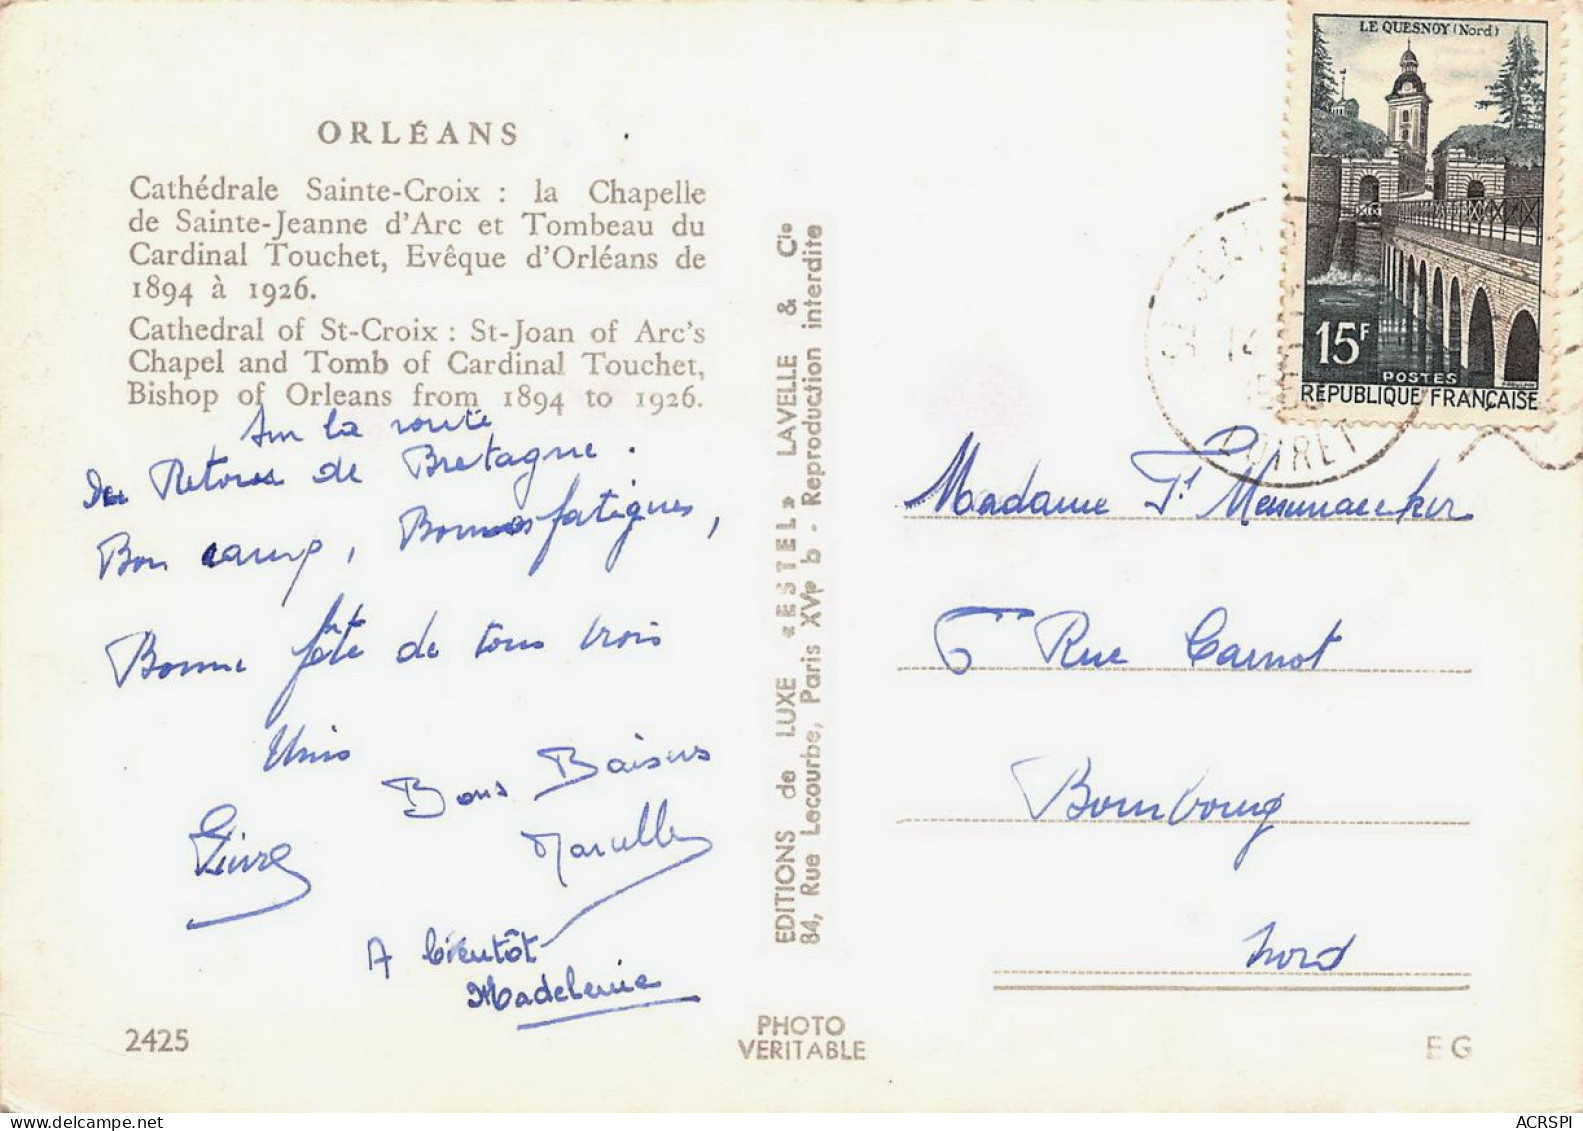 ORLÉANS
Cathédrale Sainte-Croix : la Chapelle
de Sainte-Jeanne d'Arc et Tombeau du
Cardinal Touchet, Evêque d'Orléans de
1894 à 1926.
Cathedral of St-Croix : St-Joan of Arc's
Chapel and Tomb of Cardinal Touchet,
Bishop of Orleans from 1894 to 1926.
Sur la route
du Retour de Bretagne.
Bon camp, Bonnes fatigues,
Bonne fête de tous trois
Unis
Bons Baisers
Marcelle
A bientôt
Madeleine
2425
EDITIONS de LUXE «ESTEL» LAVELLE & Cie
84, Rue Lecourbe, Paris XVe b - Reproduction interdite
PHOTO
VERITABLE
LE QUESNOY (Nord)
15F
POSTES
RÉPUBLIQUE FRANÇAISE
LOIRET
Madame
6 Rue Carnot
Bourbourg
Nord
EG
ACRSPI